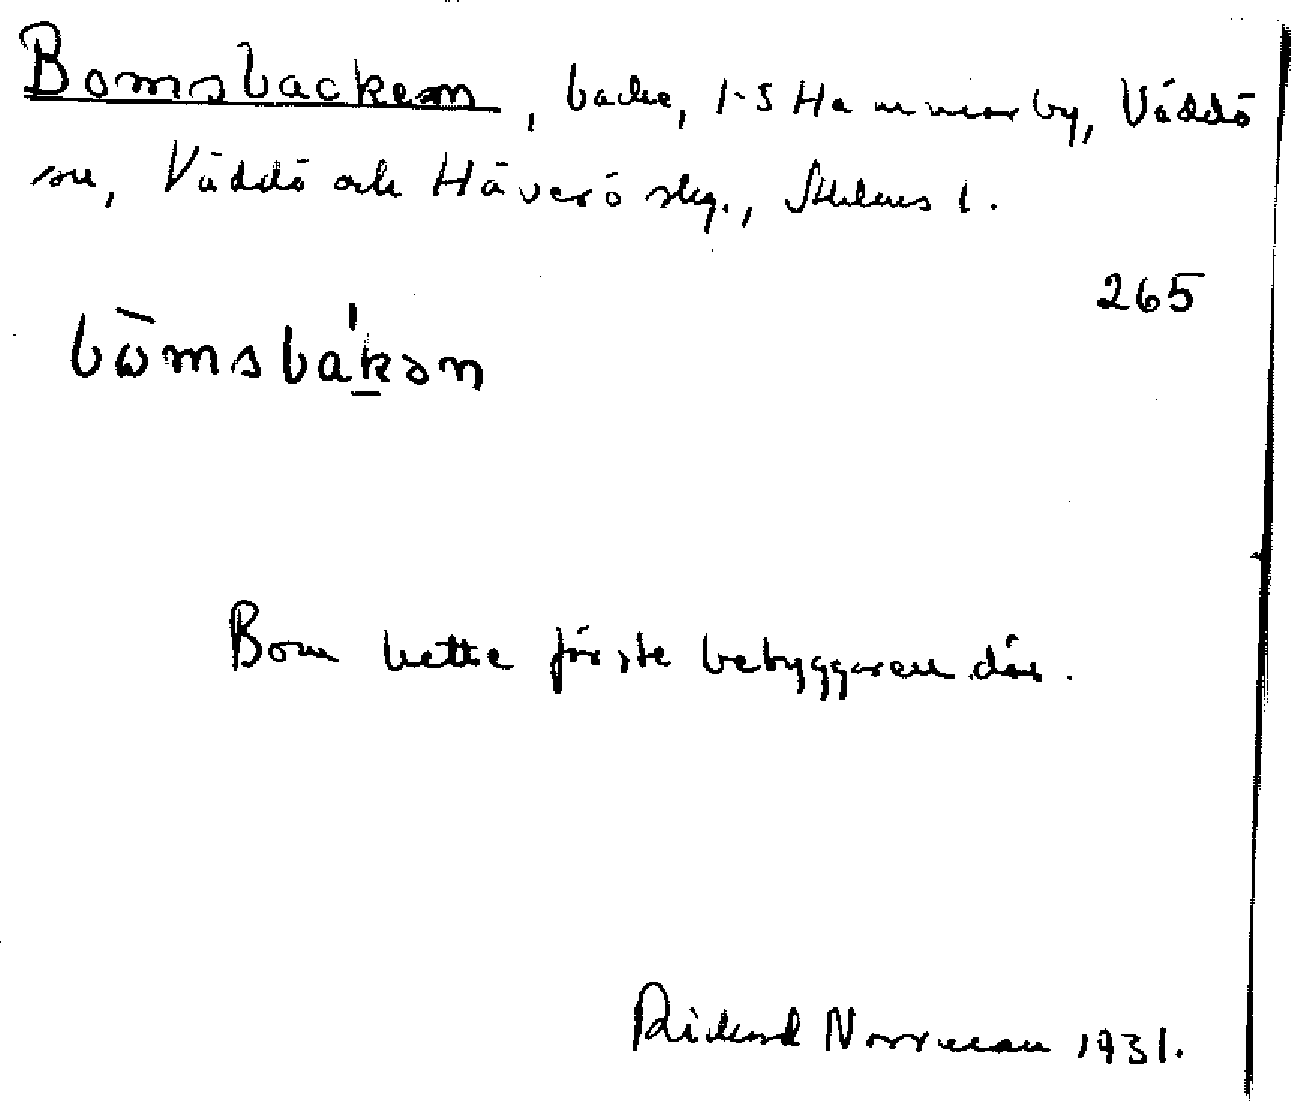 Bomsbacken, backe, 1-5 Hammarby, Väddö
sn, Väddö och Häverö skg., Sthlms l.
265
bὼmsbákən
Bom hette förste bebyggaren där.
Rickard Norrman 1931.